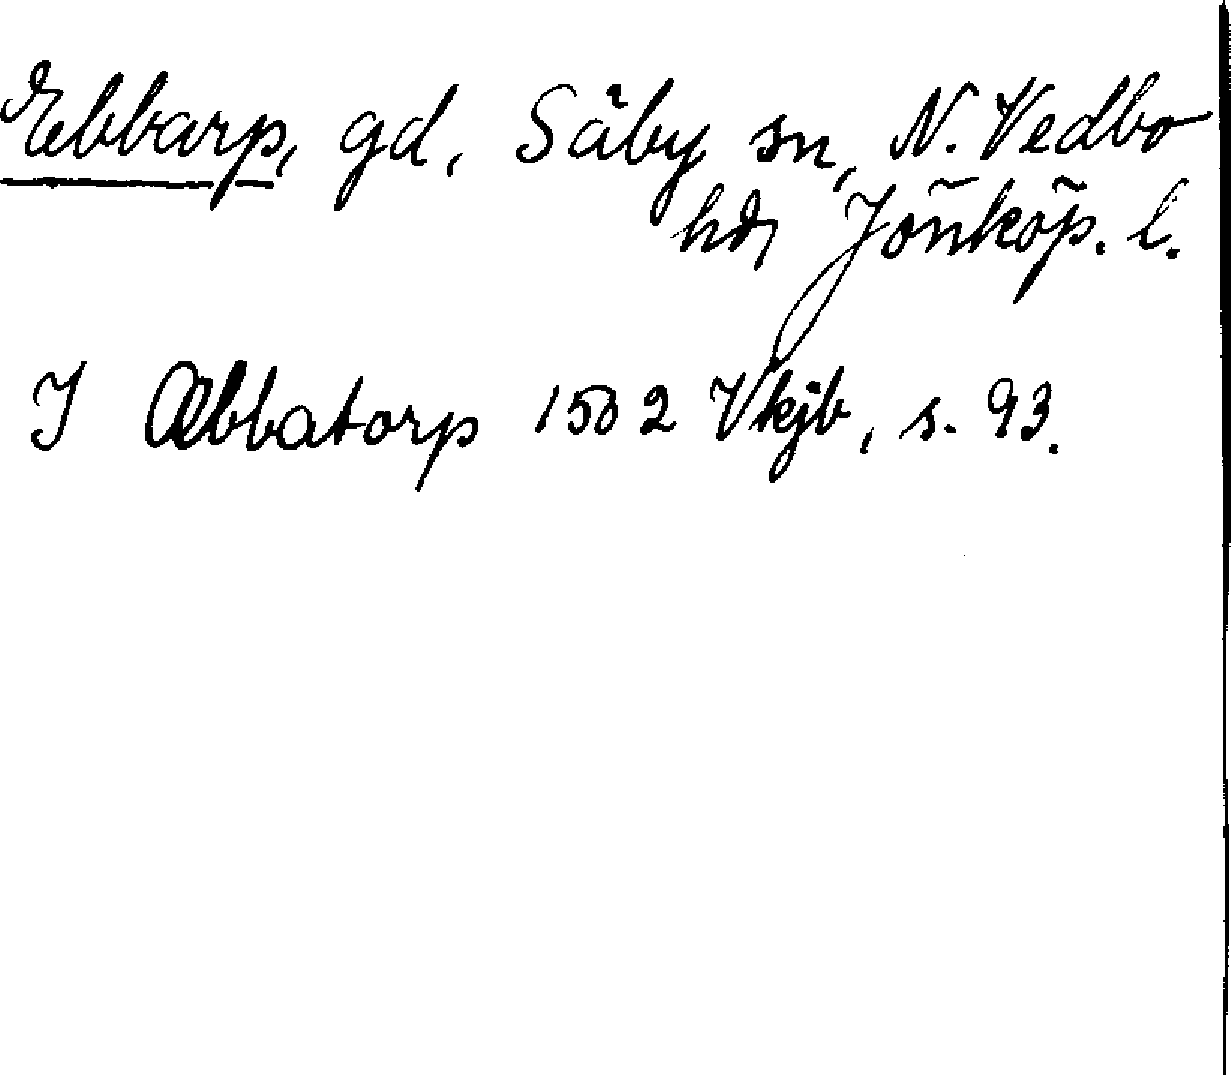 Ebbarp, gd, Säby sn, N. Vedbo
hd, Jönköp. l.
I Æbbatorp 1502 Vkjb, s. 93.